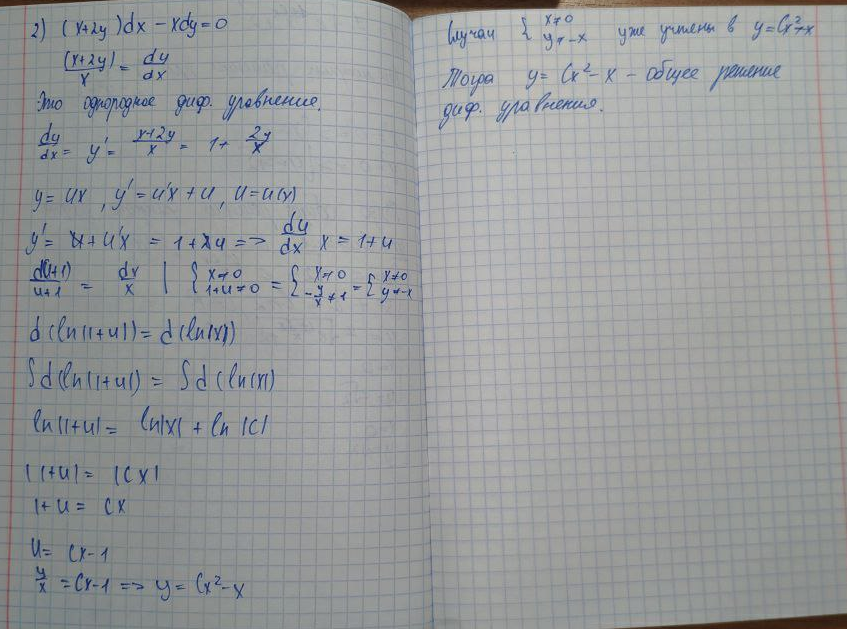 2) (x+2y)dx - xdy = 0
(x+2y)/x = dy/dx
Это однородное диф. уравнение.
dy/dx = y' = (x+2y)/x = 1 + 2y/x
y = ux, y' = u'x + u, u = u(x)
y' = u + u'x = 1 + 2u => du/dx x = 1+u
d(u+1)/(u+1) = dx/x | { x≠0 1+u≠0 = { x≠0 -y/x≠1 = { x≠0 y≠-x
d(ln|1+u|) = d(ln|x|)
∫d(ln|1+u|) = ∫d(ln|x|)
ln|1+u| = ln|x| + ln|C|
|1+u| = |Cx|
1+u = Cx
u = Cx-1
y/x = Cx-1 => y = Cx²-x
Случаи { x≠0 y≠-x уже учтены в y=Cx²-x
Тогда y = Cx²-x - общее решение
диф. уравнения.